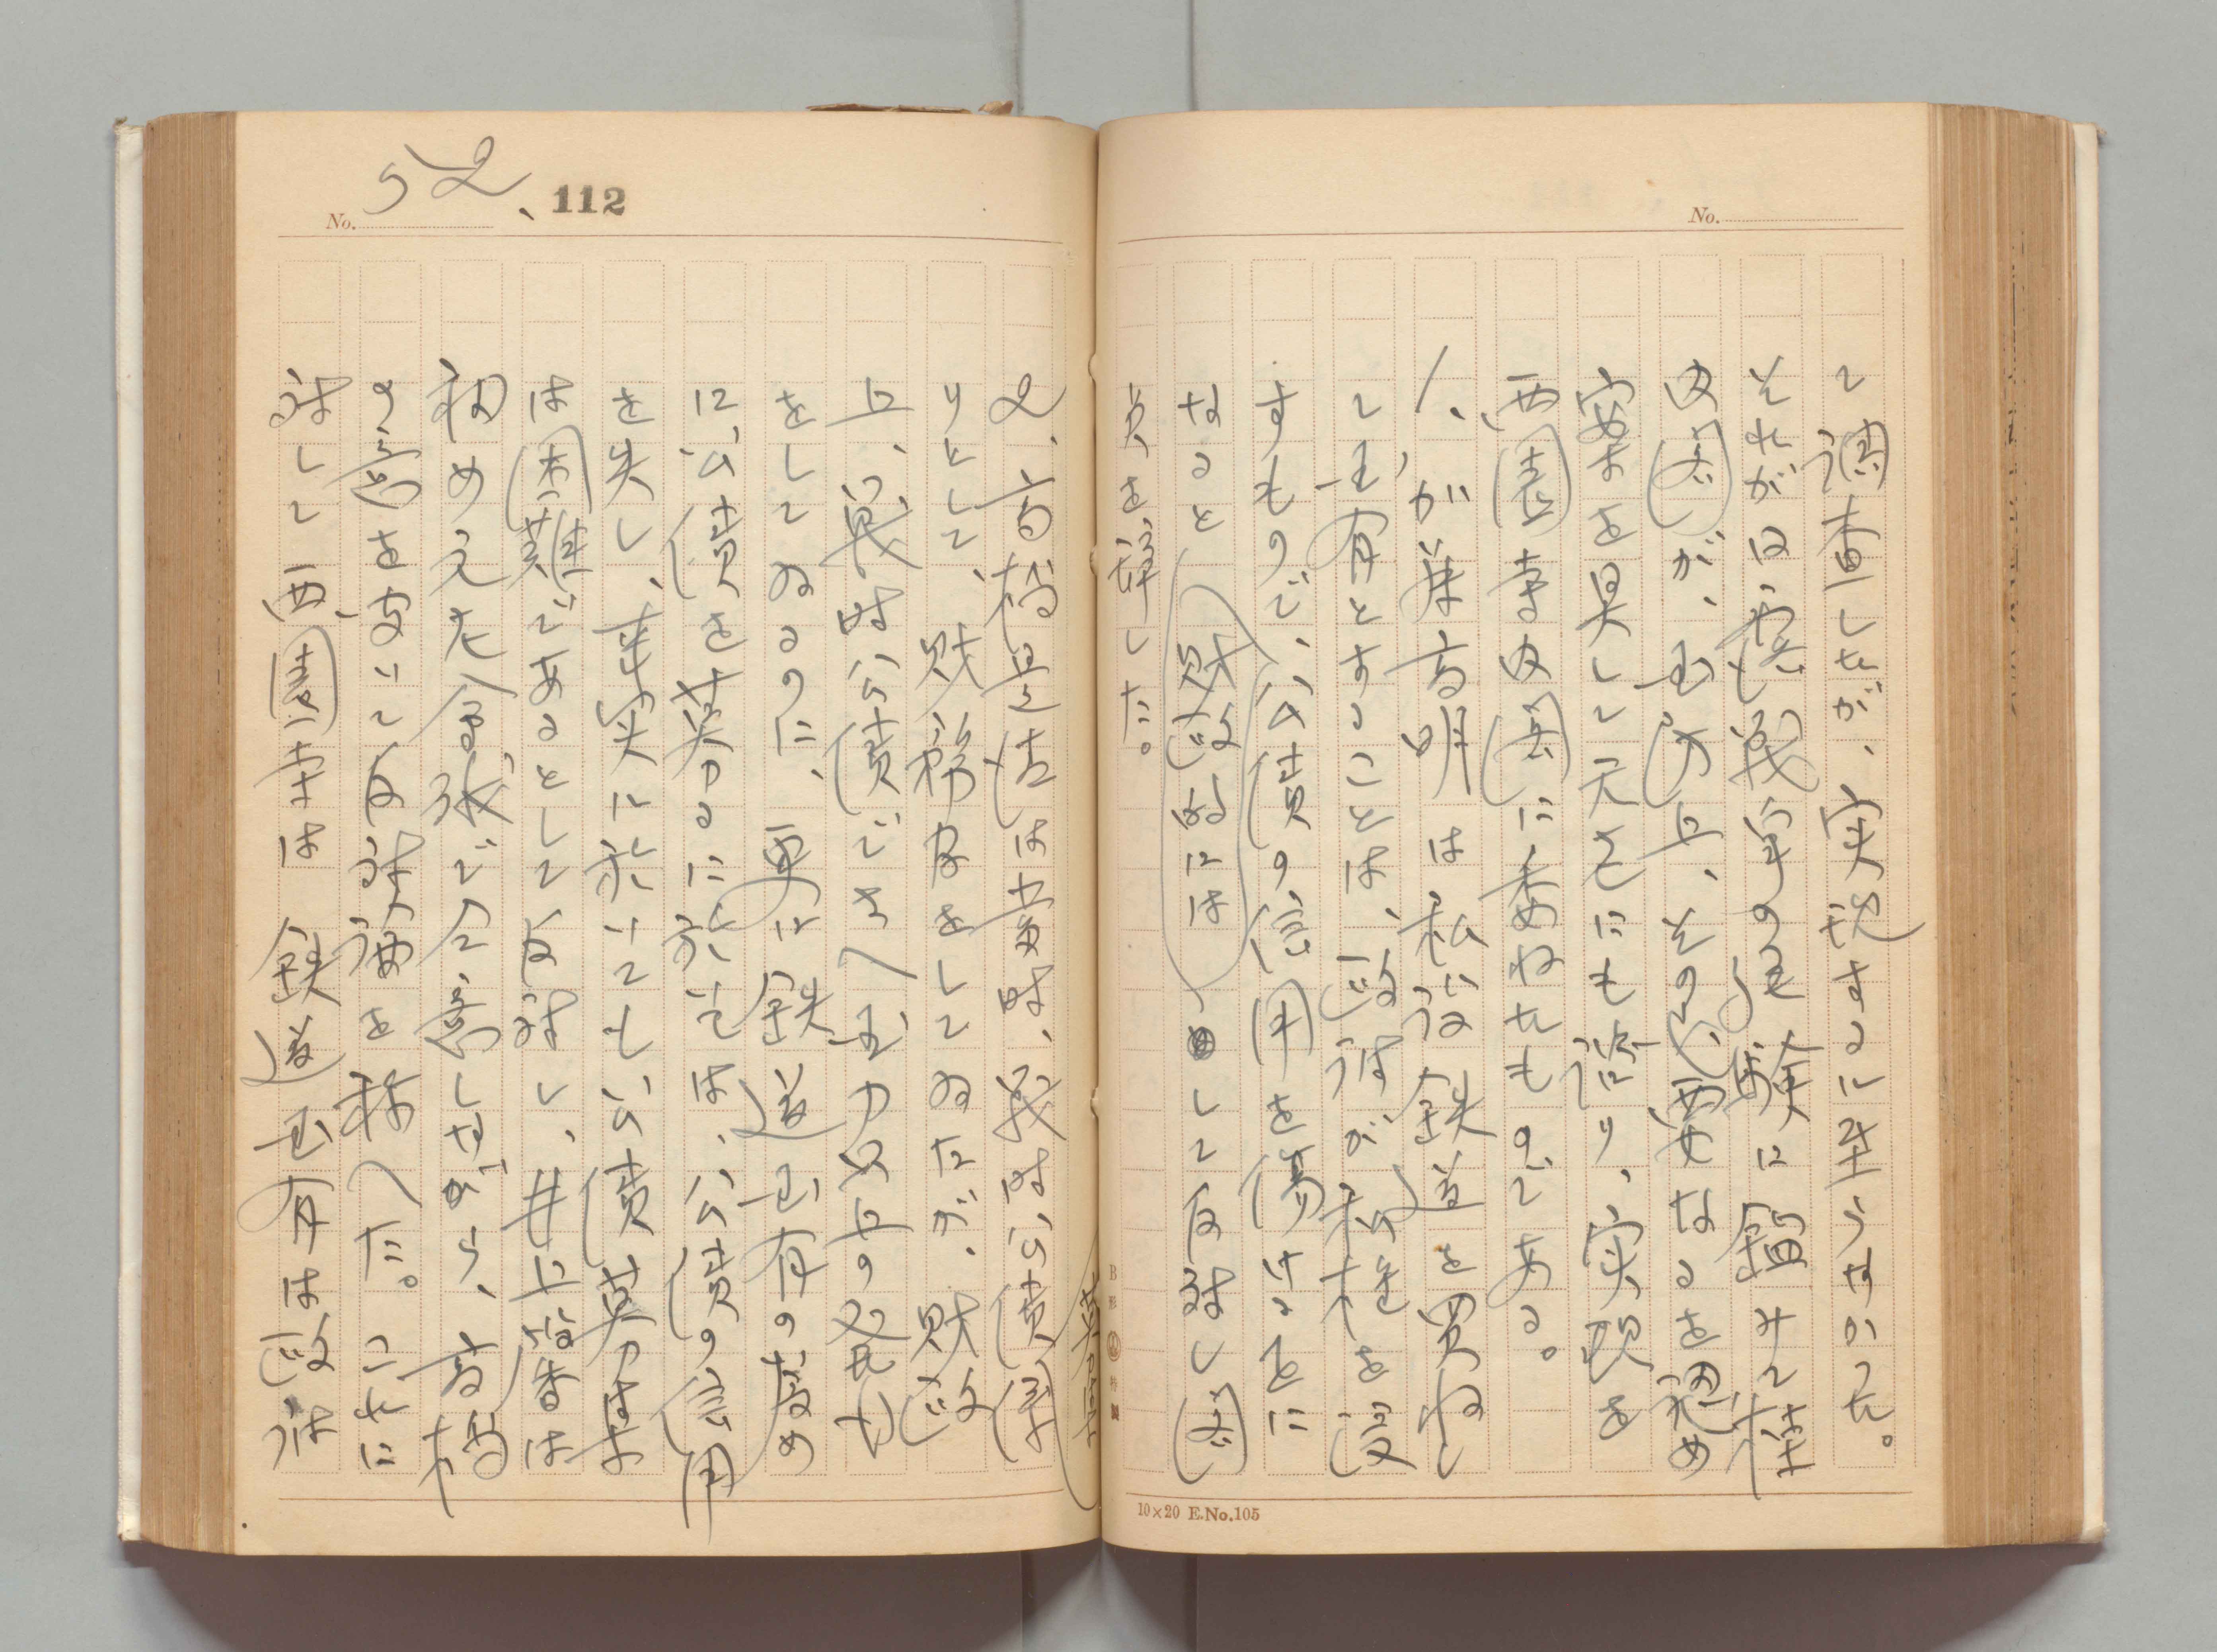 No.
て調査したが、実現するに至らなかった。
それが日露戦争の経験に鑑みて桂
内閣が、国防上、その必要なるを認め
案を具して元老にも諮り、実現を
西園寺内閣に委ねたものである。
1、が加藤高明は私設鉄道を買収し
て国有とすることは、政府が私権を侵
すもので、公債の信用を傷けることに
なると(財政的には)して反対し閣
員を辞した。
10×20 E.No.105
No. 52、112
2、高橋是清は当時、我国公債募
りとして、財務官をしてゐたが、財政
上、戦時公債でさへ国力以上の発行
をしてゐるのに、更に鉄道国有の為め
に公債を募るに於ては、公債の信用
を失し、事実に於いても公債募集
は困難であるとして反対し、井上馨は
初め元老会議で同意しながら、高橋
の意を聞いて反対論を称へた。これに
対して西園寺は 鉄道国有は政府